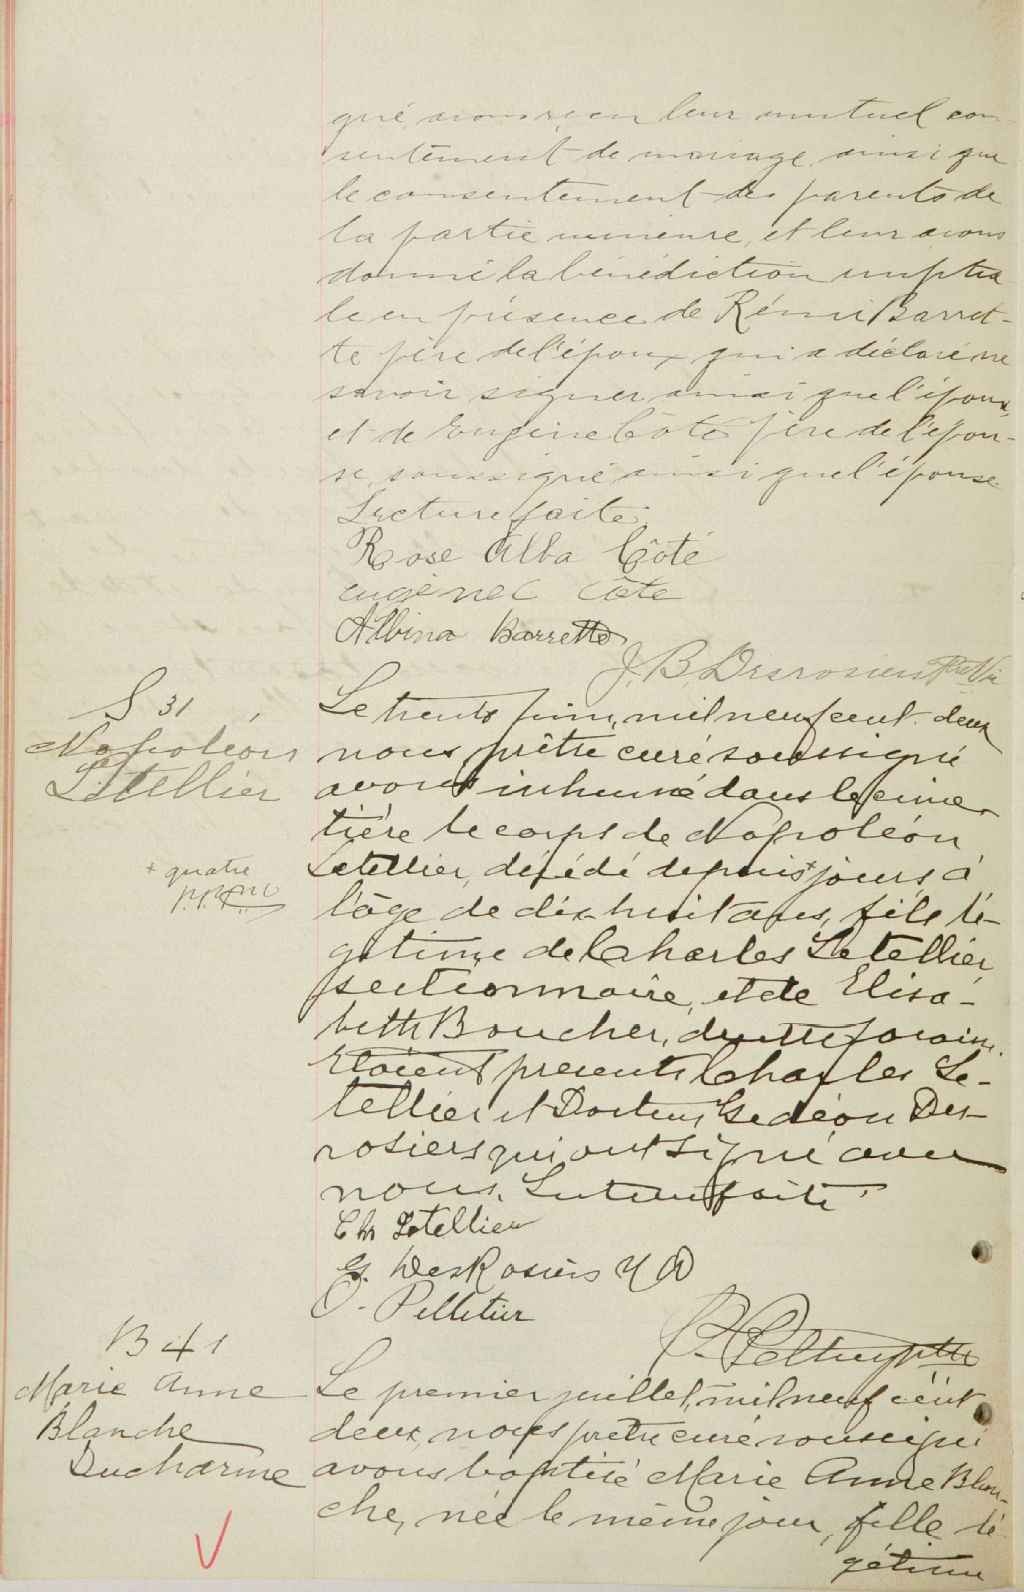 gné, avons reçu leur mutuel con-
sentement de mariage, ainsi que
le consentement des parents de
la partie mineure, et leur avons
donné la bénédiction nuptia
le en présence de Rémi Barret-
te père de l'époux qui a déclaré ne
savoir signer ainsi que l'époux,
et de Eugène Côté père de l'épou-
se, soussigné ainsi que l'épouse.
Lecture faite.
Rose Alba Côté
Eugène C Côté
Albina Barrette
J. B. Desrosiers Ptre Vic
S 31
Napoléon
Letellier
Le trente juin, mil neuf cent deux
nous prêtre curé soussigné
avons inhumé dans le cime
tière le corps de Napoléon
Letellier, décédé depuis + jours, à
+ quatre
l'âge de dix-huit ans, fils lé-
gitime de Charles Letellier,
sectionnaire, et de Elisa-
beth Boucher, de cette paroisse.
Etaient présents Charles Le-
tellier et Docteur Gédéon Des-
rosiers qui ont signé avec
nous. Lecture faite.
Ch Letellier
G. DesRosiers M D
O. Pelletier
B 41
Marie Anne
Blanche
Ducharme
Le premier juillet, mil neuf cent
deux, nous prêtre curé soussigné
avons baptisé Marie Anne Blan-
che, née le même jour, fille lé
gitime